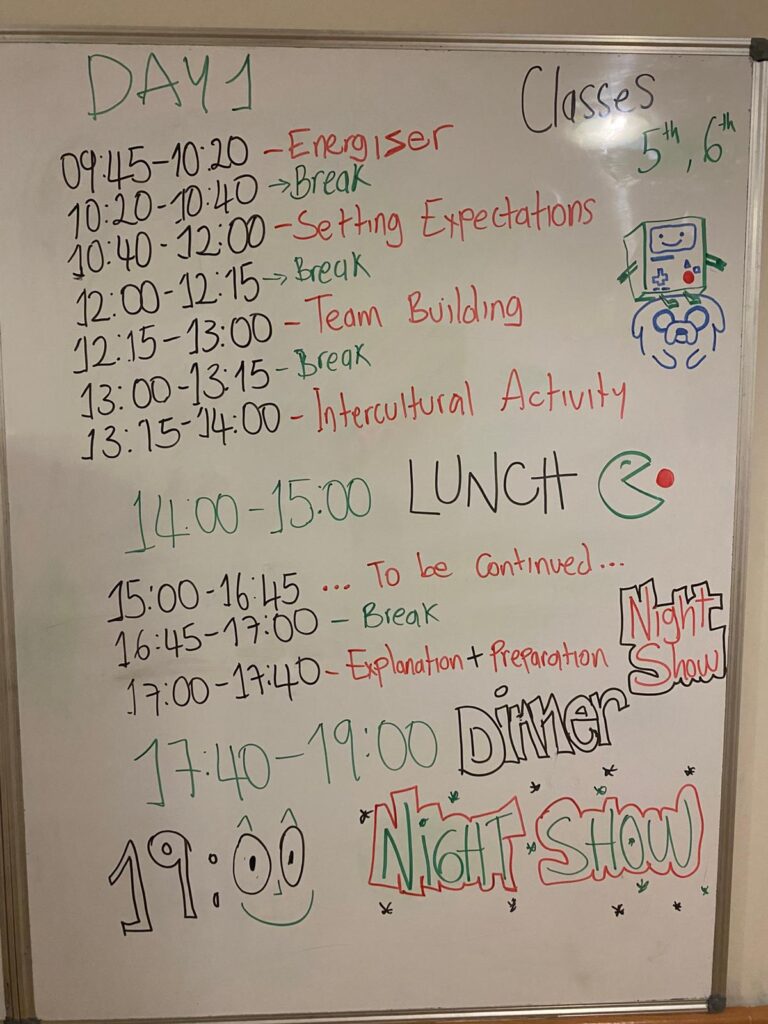 DAY 1
Classes
5th, 6th
09:45-10:20 - Energiser
10:20-10:40 → Break
10:40-12:00 - Setting Expectations
12:00-12:15 → Break
12:15-13:00 - Team Building
13:00-13:15 - Break
13:15-14:00 - Intercultural Activity
14:00-15:00 LUNCH
15:00-16:45 ... To be continued...
16:45-17:00 - Break
17:00-17:40 - Explanation + Preparation Night Show
17:40-19:00 Dinner
19:00 NiGHT SHOW